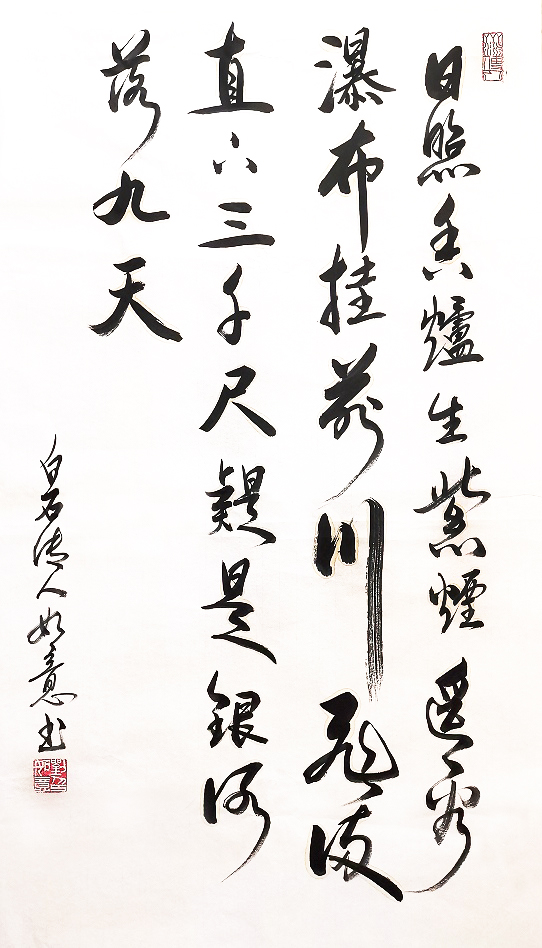 日照香爐生紫煙遙看
瀑布挂前川飛流
直下三千尺疑是銀河
落九天
白石人如意书